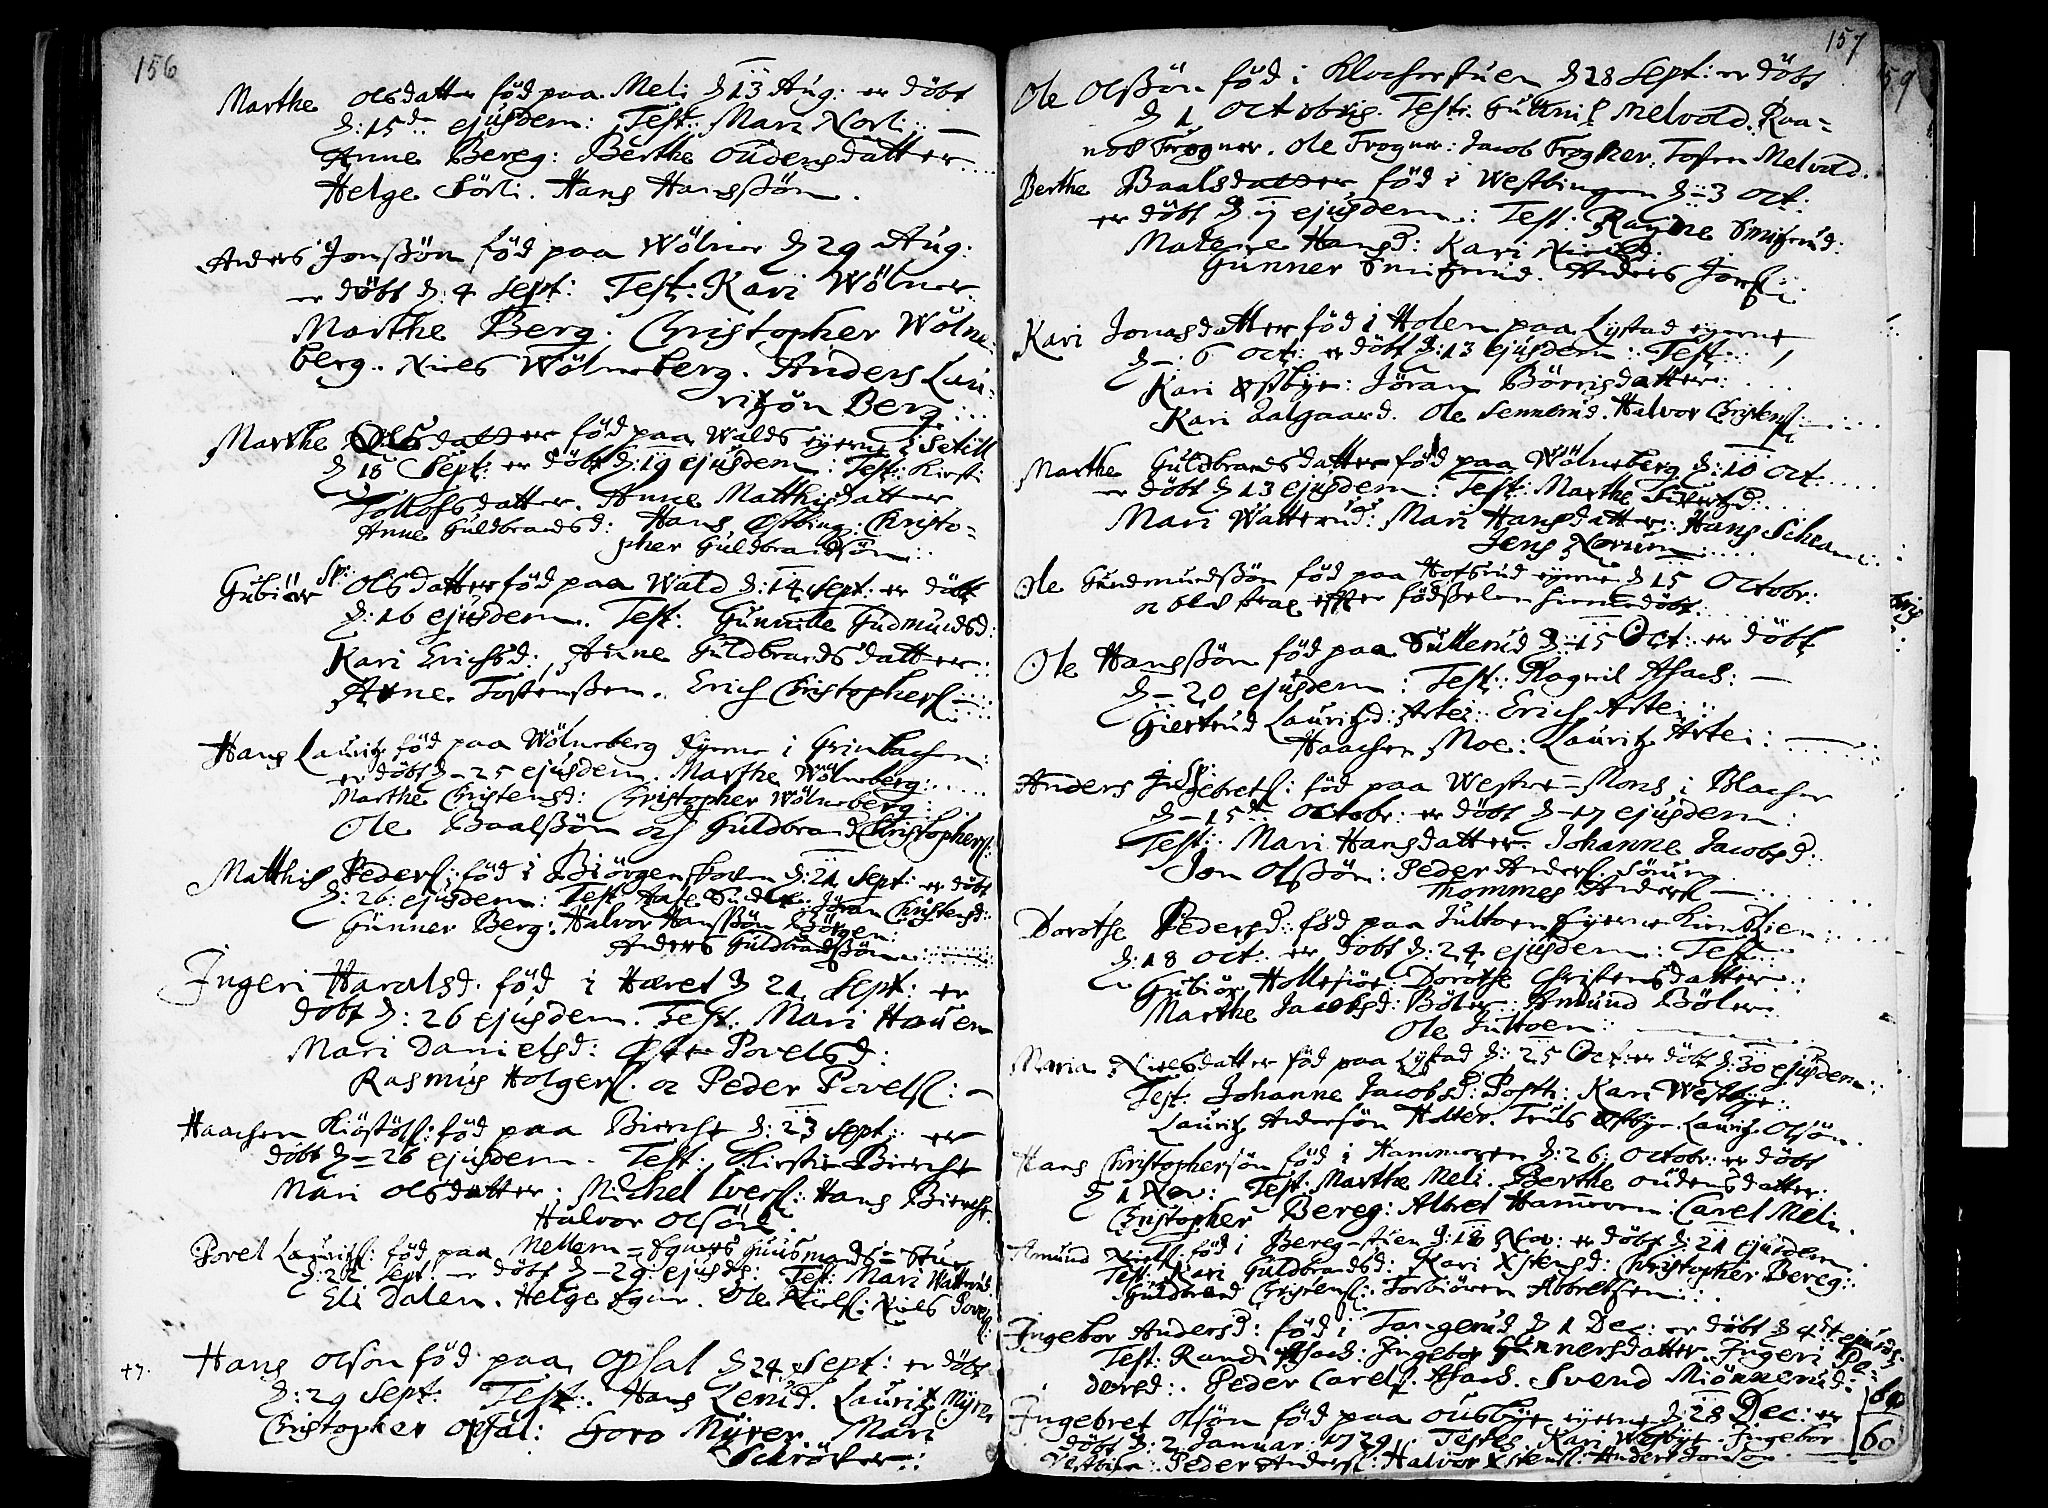 156
Marthe Olsdatter föd paa Meli d 13 Aug: er döbt
d: 15de ejusdem: Test: Mari Norli: —
Anne Bereg: Berthe Oudensdatter
Helge Sörli. Hans Hanssön.
Anders Jonssön föd paa Wölner d 29 Aug:
er döbt d: 4 Sept: Test: Kari Wölner.
Marthe Berg. Christopher Wölne-
berg. Niels Wölneberg. Anders Lau-
ritzön Berg:
Marthe Olsdatter föd paa Walds eyerne i Setill
d 18 Sept: er döbt d: 19 ejusdem: Test: Kirsti
Tollofsdatter. Anne Matthisdatter
Anne Guldbrandsd: Hans Østbing: Christo-
pher Guldbrandsön:
Gubiör Sp: Olsdatter föd paa Wald d: 14 Sept: er döbt
d: 16 ejusdem. Test: Gunnille Gudmundsd:
Kari Erichsd: Anne Guldbrandsdatter:
Arne Tostenssen. Erich Christophers:
Hans Lauritz föd paa Wölneberg Eyerne i Grinbachen:
er döbt d - 25 ejusdem. Marthe Wölneberg:
Marthe Christensd: Christopher Wölneberg:
Ole Baalssön och Guldbrand Christophers:
Matthis Peders: föd i Biörgenskoven d: 21 Sept: er döbt
d: 26: ejusdem: Test: Aase Jöran Christensd:
Gunner Berg: Halvor Hanssön Börgen:
Anders Guldbrandssön:
Ingeri Haralsd. föd i Haret d 21 Sept: er
döbt d: 26 ejusdem. Test: Mari Hauen
Mari Danielsd: Povelsd:
Rasmus Holgers. oc Peder Povels: —
Haachen Kiöstöls: föd paa Bierche d: 23 Sept: er
döbt d = 26 ejusdem. Test: Kirstie Bierche
Mari Olsdatter: Michel Ivers: Hans Bierche.
Halvor Olsön.
Povel Lauritzs: föd paa Mellem = Egners Huusmands = Stue
d: 22 Sept: er döbt d - 29: ejusd: Test: Mari Watterud.
Eli Dalen. Helge Egner. Ole Niels: Niels Povels:
47. Hans Olson föd paa Opsal d 24 Sept: er döbt
d: 29 Sept: Test: Hans Lerud. Lauritz Myrer
Christopher Opsal: Goro Myrer Mari
Schröder:
157
Ole Olssön föd i Klocherstuen d 28 Sept: er döbt
d 1 Octobris. Test: Melvold. Raa-
Frogner. Ole Frogner: Jacob Frogner. Tosten Melvold.
Berthe Baalsdatter föd i Westbingen d = 3 Oct:
er döbt d. 7 ejusdem: Test: Ragne Smitzrud:
Malene Hansd: Kari Nielsd:
Gunner Smitzrud. Anders Jons:
Kari Jonasdatter föd i Holen paa Lystad eyerne
d -: 6 Oct: er döbt d: 13 ejusdem: Test:
Kari Østbye: Jöran Börrisdatter:
Kari Aalgaard. Ole Sennerud. Halvor Christens:
Marthe Guldbrandsdatter föd paa Wölneberg d: 10 Oct:
er döbt d 13 ejusdem: Test: Marthe Sivertzd:
Mari Watterud: Mari Hansdatter: Hans Scheane:
Jens Norum
Ole Gundmundssön föd paa Hofsrud eyerne d 15 Octobr:
oc blef strax effter födsselen hiemmedöbt:
Ole Hanssön föd paa Sullerud d - 15 Oct: er döbt
d - 20 ejusdem: Test: Ragnil Asach: —
Giertrud Lauritzd: Artei: Erich Artei:
Haachen Moe: Lauritz Artei:
Anders Sp: Ingebrets: föd paa Westre = Mons i Blacher
d - 15de Octobr: er döbt d - 17 ejusdem:
Test: Mari Hansdatter. Johanne Jacobsd:
Jon Olssön: Peder Anders: Sörum
Thommes Anders —
Dorothe Pedersd: föd paa Juttoen Eyerne
d: 18 Oct: er döbt d: 24 ejusdem: Test:
Gubiör Hollesiöe: Dorothe Christensdatter:
Marthe Jacobsd: Böler: Amund Böler:
Ole Juttoen:
Maria Nielsdatter föd paa Lystad d: 25 Oct: er döbt d: 30 ejusdem:
Test: Johanne Jacobsd: Posth: Kari Westbye:
Lauritz Andersön Holter. Truls Østbye. Lauritz Olsön.
Hans Christophersön föd i Hammeren d: 26: Octobr: er döbt
d 1 Nov: Test: Marthe Meli. Berthe Oudensdatter:
Christopher Bereg: Albret Hameren: Carel Meli.
Amund Niels: föd i Bereg-stien d: 18 Nov: er döbt d: 21 ejusdem.
Test: Kari Guldbrandsd: Kari Xstensd: Christopher Bereg:
Guldbrand Christens: Torbiören Albretsen:
Ingebor Andersd: föd i Tangerud d 1 Dec: er döbt d 4de ejusd:
Test: Randi Asach: Ingebor Gunnersdatter. Ingeri Pe-
dersd: Peder Carels. Asach. Svend Miönnerud.
Ingebret Olsön föd paa Ousbye eyerne d: 28 Dec: er
döbt d: 2 Januar: 1729. Testes. Kari Westbye. Ingebor
Westbye: Peder Anders: Halvor Xstens: Anders Jonsön
60